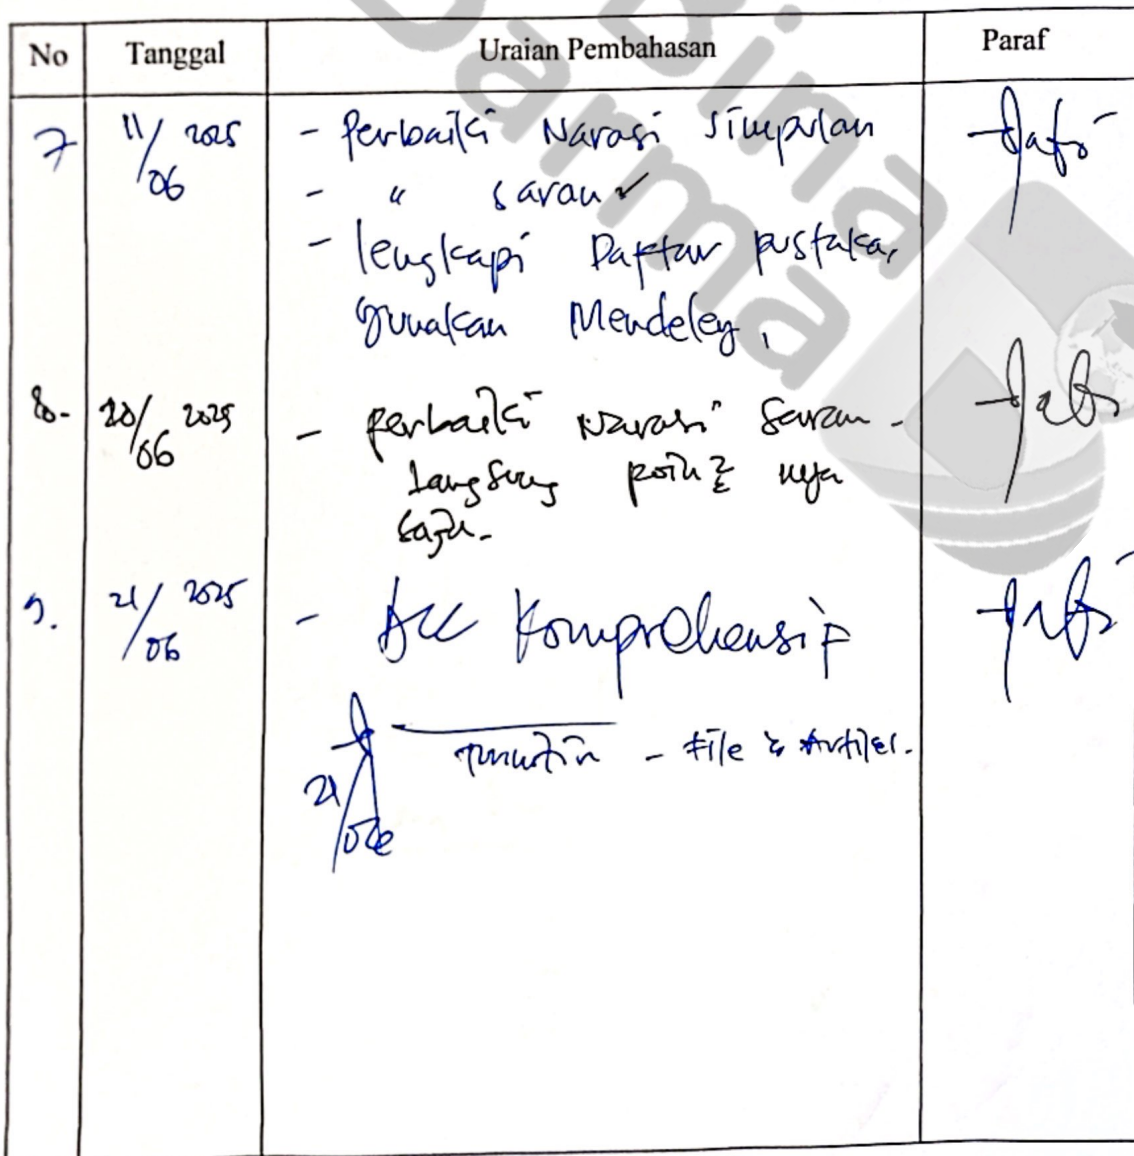 Bina
Darma
No Tanggal Uraian Pembahasan Paraf
7 11/06 2025 - Perbaiki Narasi Simpulan
- " saran ✓
- lengkapi Daftar pustaka,
gunakan Mendeley,
8. 20/06 2025 - perbaiki Narasi Saran -
langsung poin2 nya
saja.
9. 21/06 2025 - Acc Komprehensif
turnitin - file & Artikel.
21/06